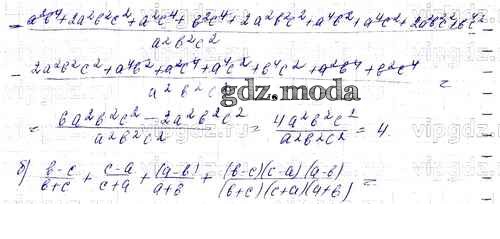 = a²b⁴ + 2a²b²c² + a²c⁴ + b²c⁴ + 2a²b²c² + a⁴b² + a⁴c² + 2a²b²c² + b⁴c² / a²b²c²
- 2a²b²c² + a⁴b² + a²c⁴ + a⁴c² + b⁴c² + a²b⁴ + b²c⁴ / a²b²c² =
gdz.moda
= 6a²b²c² - 2a²b²c² / a²b²c² = 4a²b²c² / a²b²c² = 4.
б) b-c / b+c + c-a / c+a + (a-b) / a+b + (b-c)(c-a)(a-b) / (b+c)(c+a)(a+b) =